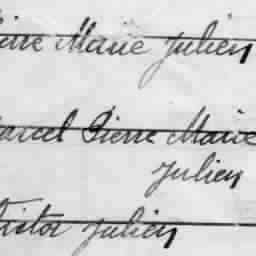 Pierre Marie Julien
Marcel Pierre Marie
Julien
Victor Julien